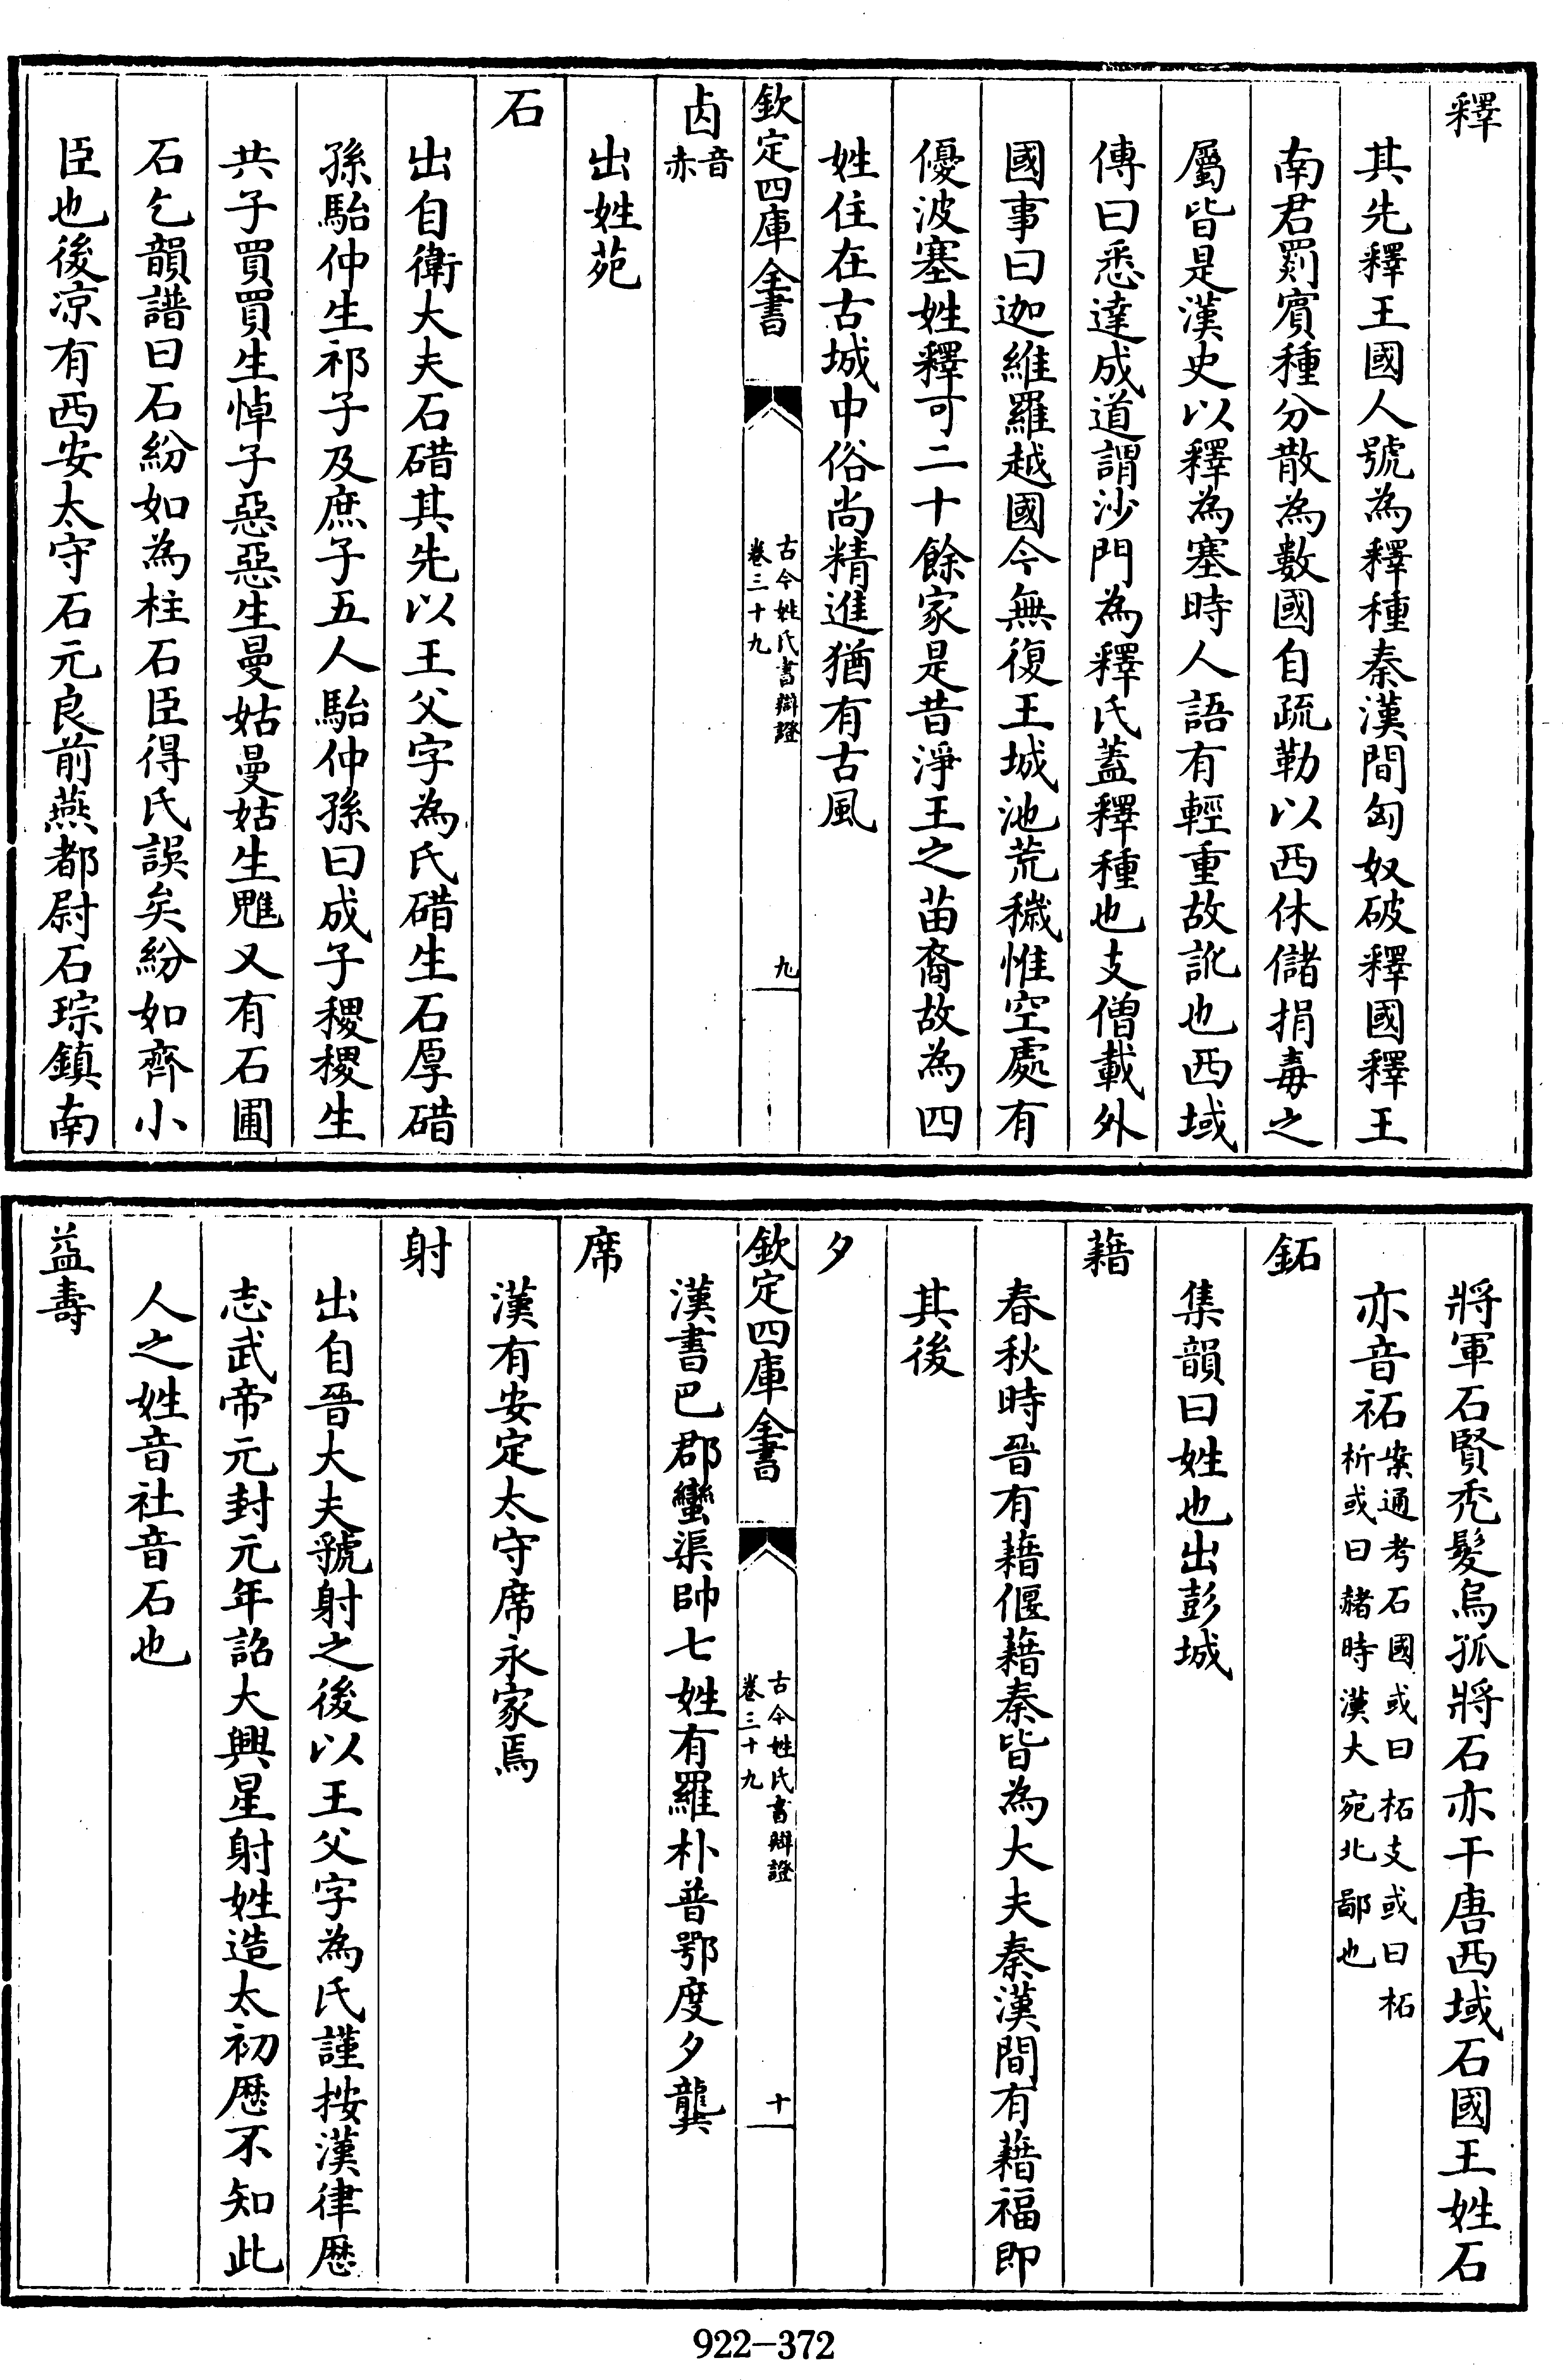 釋
其先釋王國人號為釋種秦漢間匈奴破釋國釋王
南君罽賓種分散為數國自疏勒以西休儲捐毒之
屬皆是漢史以釋為塞時人語有輕重故訛也西域
傳曰悉達成道謂沙門為釋氏蓋釋種也支僧載外
國事曰迦維羅越國今無復王城池荒穢惟空處有
優波塞姓釋可二十餘家是昔淨王之苗裔故為四
姓住在古城中俗尚精進猶有古風
欽定四庫全書
古今姓氏書辯證
卷三十九
九
卤音赤
出姓苑
石
出自衛大夫石碏其先以王父字為氏碏生石厚碏
孫駘仲生祁子及庶子五人駘仲孫曰成子稷稷生
共子買買生悼子惡惡生曼姑曼姑生魋又有石圃
石乞韻譜曰石紛如為柱石臣得氏誤矣紛如齊小
臣也後凉有西安太守石元良前燕都尉石琮鎮南
將軍石賢禿髮烏孤將石亦干唐西域石國王姓石
亦音祏案通考石國或曰柘支或曰柘
析或曰赭時漢大宛北鄙也
鉐
集韻曰姓也出彭城
藉
春秋時晉有藉偃藉秦皆為大夫秦漢間有藉福即
其後
夕
欽定四庫全書
古今姓氏書辯證
卷三十九
十
漢書巴郡蠻渠帥七姓有羅朴普鄂度夕龔
席
漢有安定太守席永家焉
射
出自晉大夫虢射之後以王父字為氏謹按漢律歷
志武帝元封元年詔大興星射姓造太初歷不知此
人之姓音社音石也
益壽
922-372